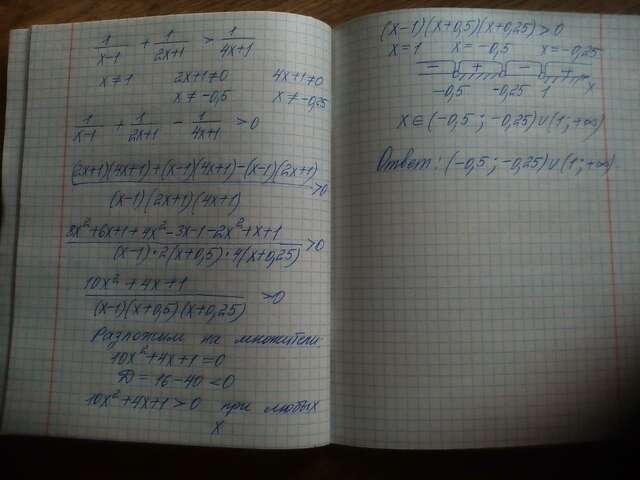 1/(x-1) + 1/(2x+1) > 1/(4x+1)
x ≠ 1 2x+1≠0 4x+1≠0
x ≠ -0,5 x ≠ -0,25
1/(x-1) + 1/(2x+1) - 1/(4x+1) > 0
((2x+1)(4x+1)+(x-1)(4x+1)-(x-1)(2x+1))/((x-1)(2x+1)(4x+1)) >0
(8x²+6x+1+4x²-3x-1-2x²+x+1)/((x-1)·2(x+0,5)·4(x+0,25)) >0
(10x²+4x+1)/((x-1)(x+0,5)(x+0,25)) >0
Разложим на множители:
10x²+4x+1=0
D = 16-40 <0
10x²+4x+1>0 при любых
x
(x-1)(x+0,5)(x+0,25)>0
x=1 x=-0,5 x=-0,25
- + - +
-0,5 -0,25 1 x
x∈(-0,5; -0,25)∪(1;+∞)
Ответ: (-0,5; -0,25)∪(1;+∞).